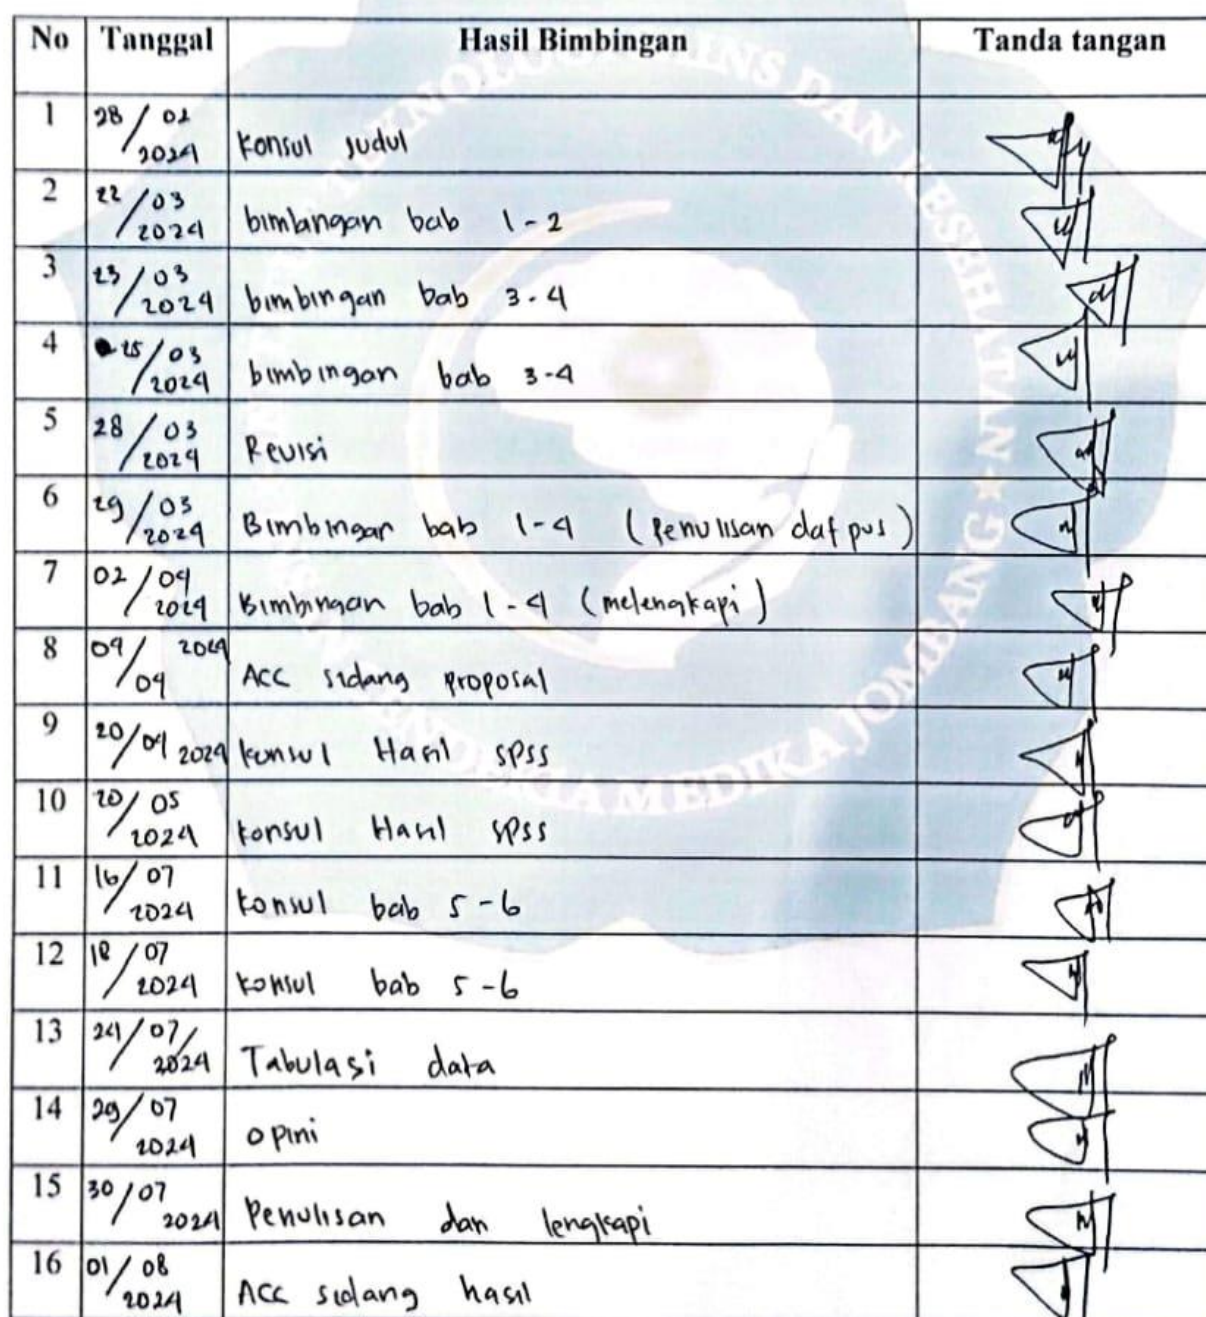 No Tanggal Hasil Bimbingan Tanda tangan
1 28/02 2024 Konsul judul
2 22/03 2024 bimbingan bab 1-2
3 23/03 2024 bimbingan bab 3-4
4 25/03 2024 bimbingan bab 3-4
5 28/03 2024 Revisi
6 29/03 2024 Bimbingan bab 1-4 (penulisan daf pus)
7 02/04 2024 Bimbingan bab 1-4 (melengkapi)
8 04/04 2024 ACC sidang proposal
9 20/04 2024 konsul Hasil SPSS
10 20/05 2024 konsul Hasil SPSS
11 16/07 2024 konsul bab 5-6
12 18/07 2024 konsul bab 5-6
13 24/07/2024 Tabulasi data
14 29/07 2024 opini
15 30/07 2024 Penulisan dan lengkapi
16 01/08 2024 ACC sidang hasil
SAINS DAN KESEHATAN INSAN CENDEKIA MEDIKA JOMBANG